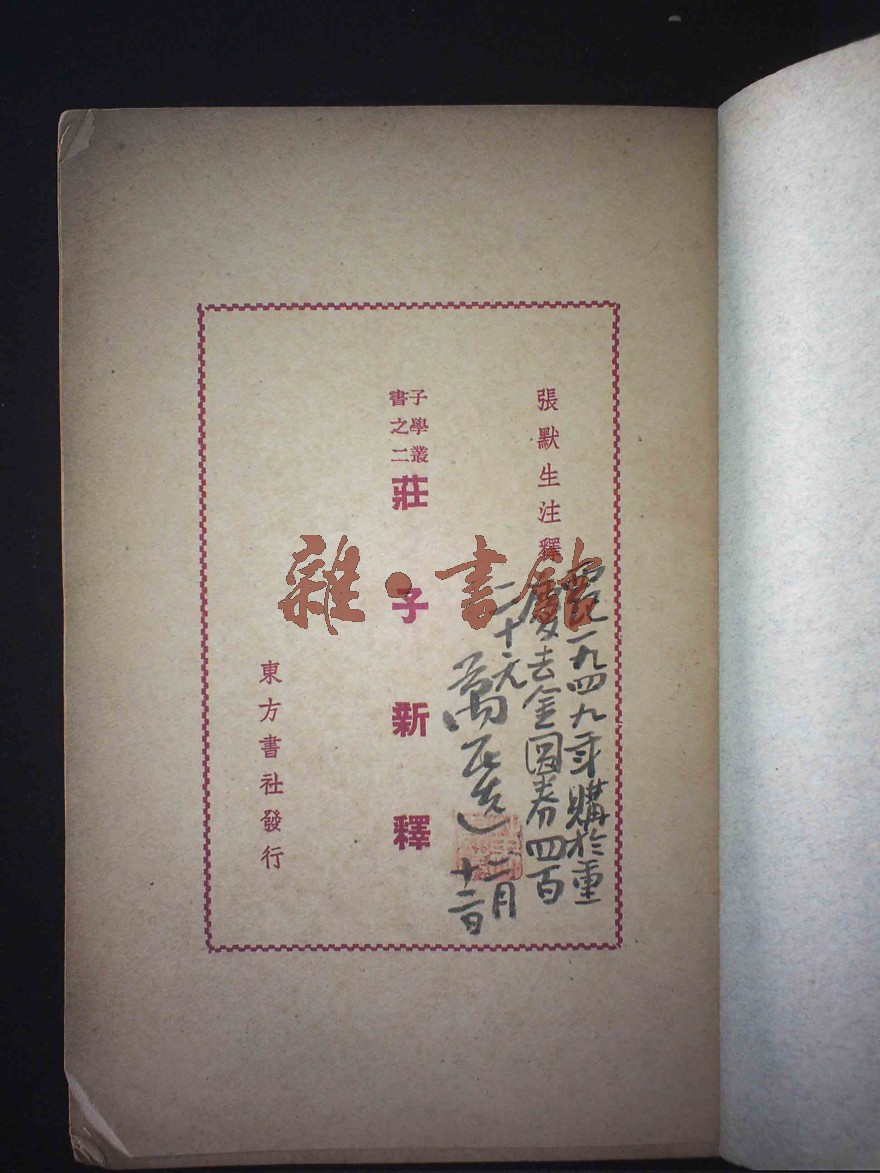 張默生注釋
子學叢
書之二
莊子新釋
東方書社發行
一九四九年購於重
慶去金圓券四百
二十元
二月
十二日
雜·書館